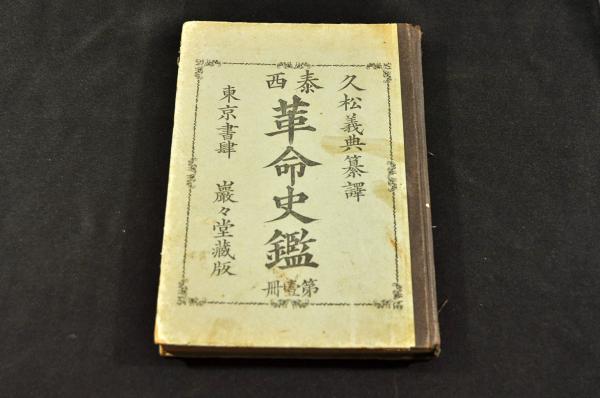 久松義典纂譯
泰西
革命史鑑
第壹冊
東京書肆 巖々堂藏版